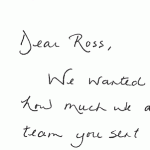 Dear Ross,
We wanted
how much we a
team you sent